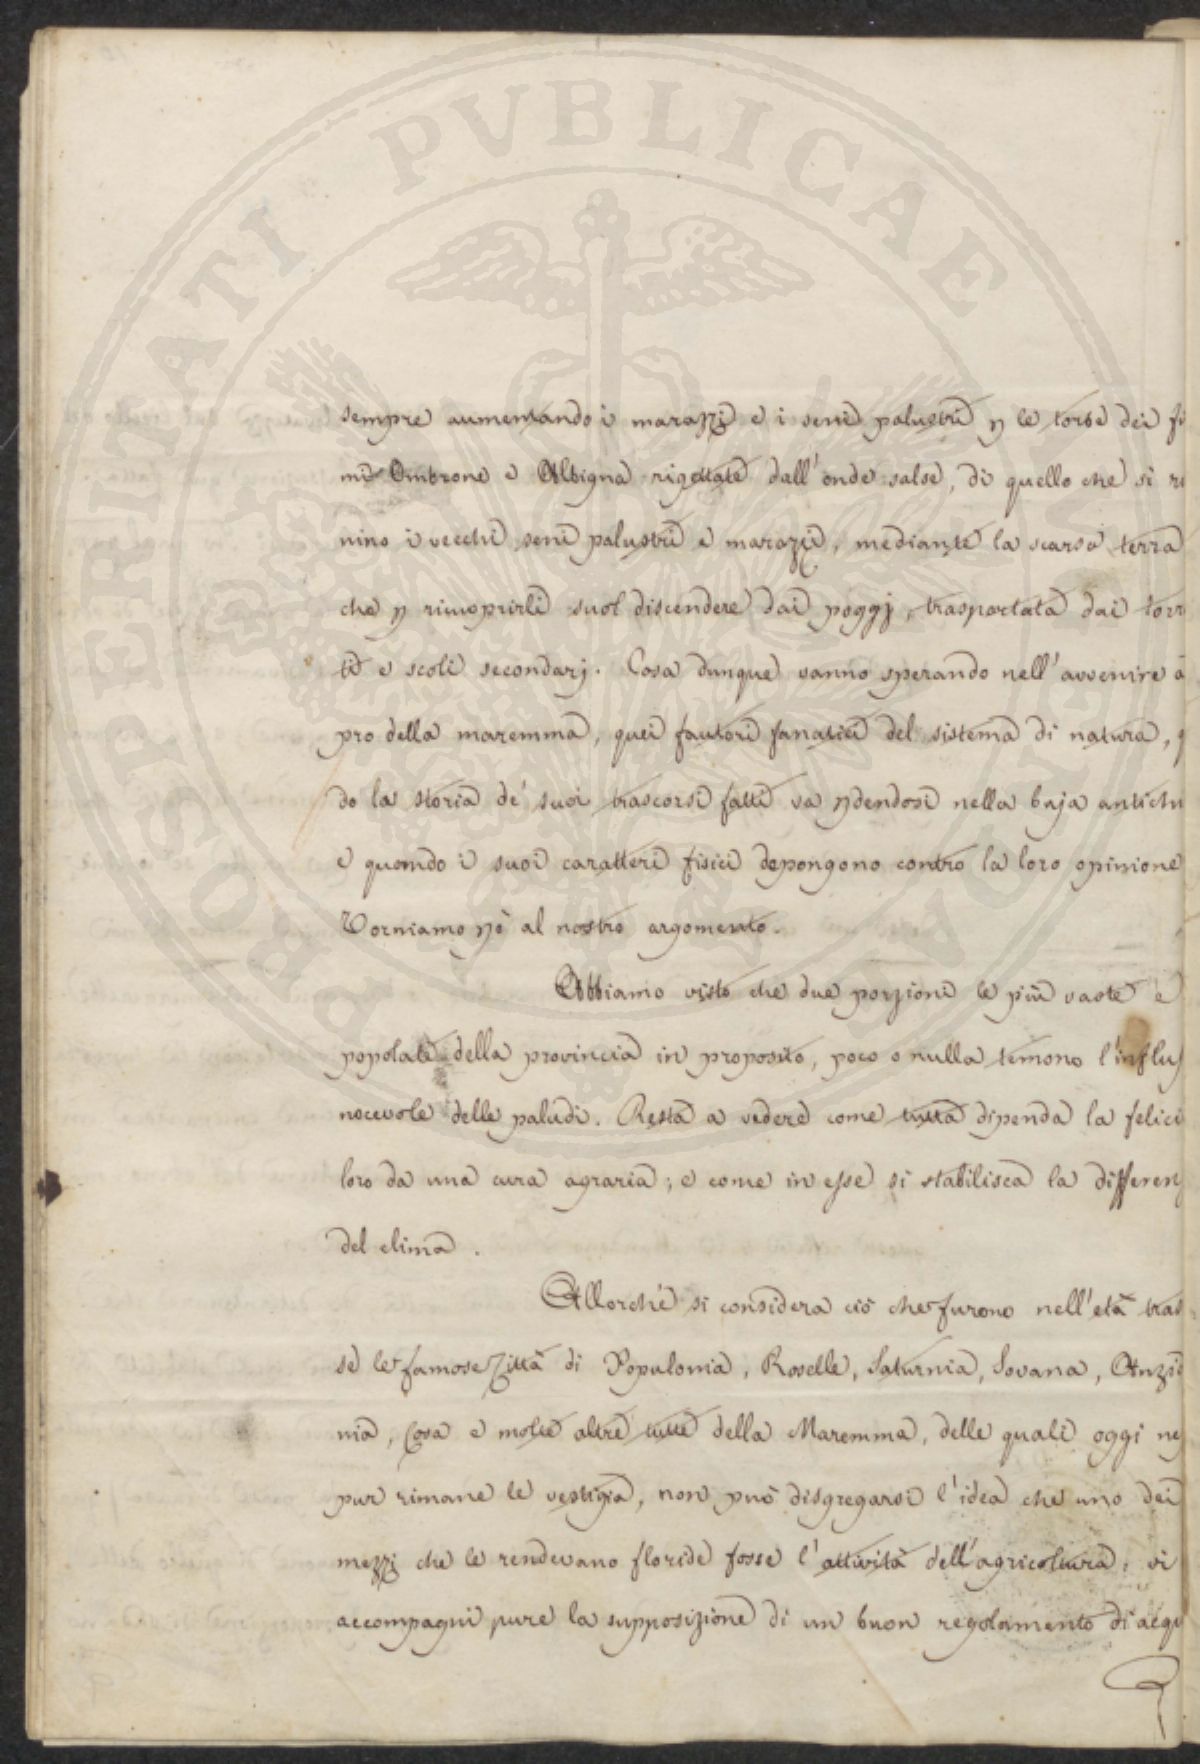 PROSPERITATI PVBLICAE
sempre aumentando i marazzi e i seni palustri p le torbe dei fi
mi Ombrone e Albigna rigettate dall'onde salse, di quello che si ri
nino i vecchi seni palustri e marazzi, mediante la scarsa terra
che p ricuoprirli suol discendere dai poggj, trasportata dai torr
ti e scoli secondarj. Cosa dunque vanno sperando nell'avvenire a
pro della maremma, quei fautori fanatici del sistema di natura, q
do la storia de' suoi trascorsi fatti va pdendosi nella baja antichi
e quando i suoi caratteri fisici depongono contro la loro opinione
Torniamo pò al nostro argomento.
Abbiamo visto che due porzioni le più vaste e
popolate della provincia in proposito, poco o nulla temono l'influs
nocevole delle paludi. Resta a vedere come tutta dipenda la felici
loro da una cura agraria; e come in esse si stabilisca la differen
del clima.
Allorchè si considera ciò che furono nell'età tras
se le famose Città di Populonia, Roselle, Saturnia, Sovana, Anzid
nia, Cosa e molte altre tutte della Maremma, delle quali oggi nep
pur rimane le vestigia, non può disgregarsi l'idea che uno dei
mezzi che le rendevano floride fosse l'attività dell'agricoltura: vi
accompagni pure la supposizione di un buon regolamento di acqu